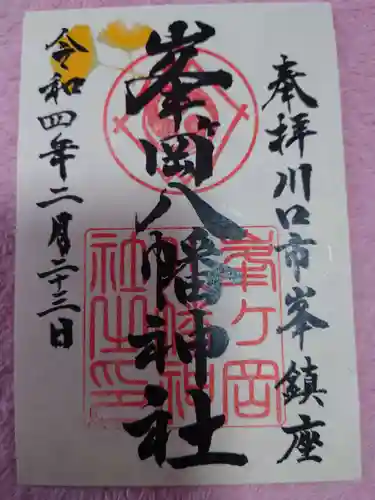 奉拝川口市峯鎮座
峯岡八幡神社
峯ケ岡
八幡神
社之印
令和四年二月二十三日